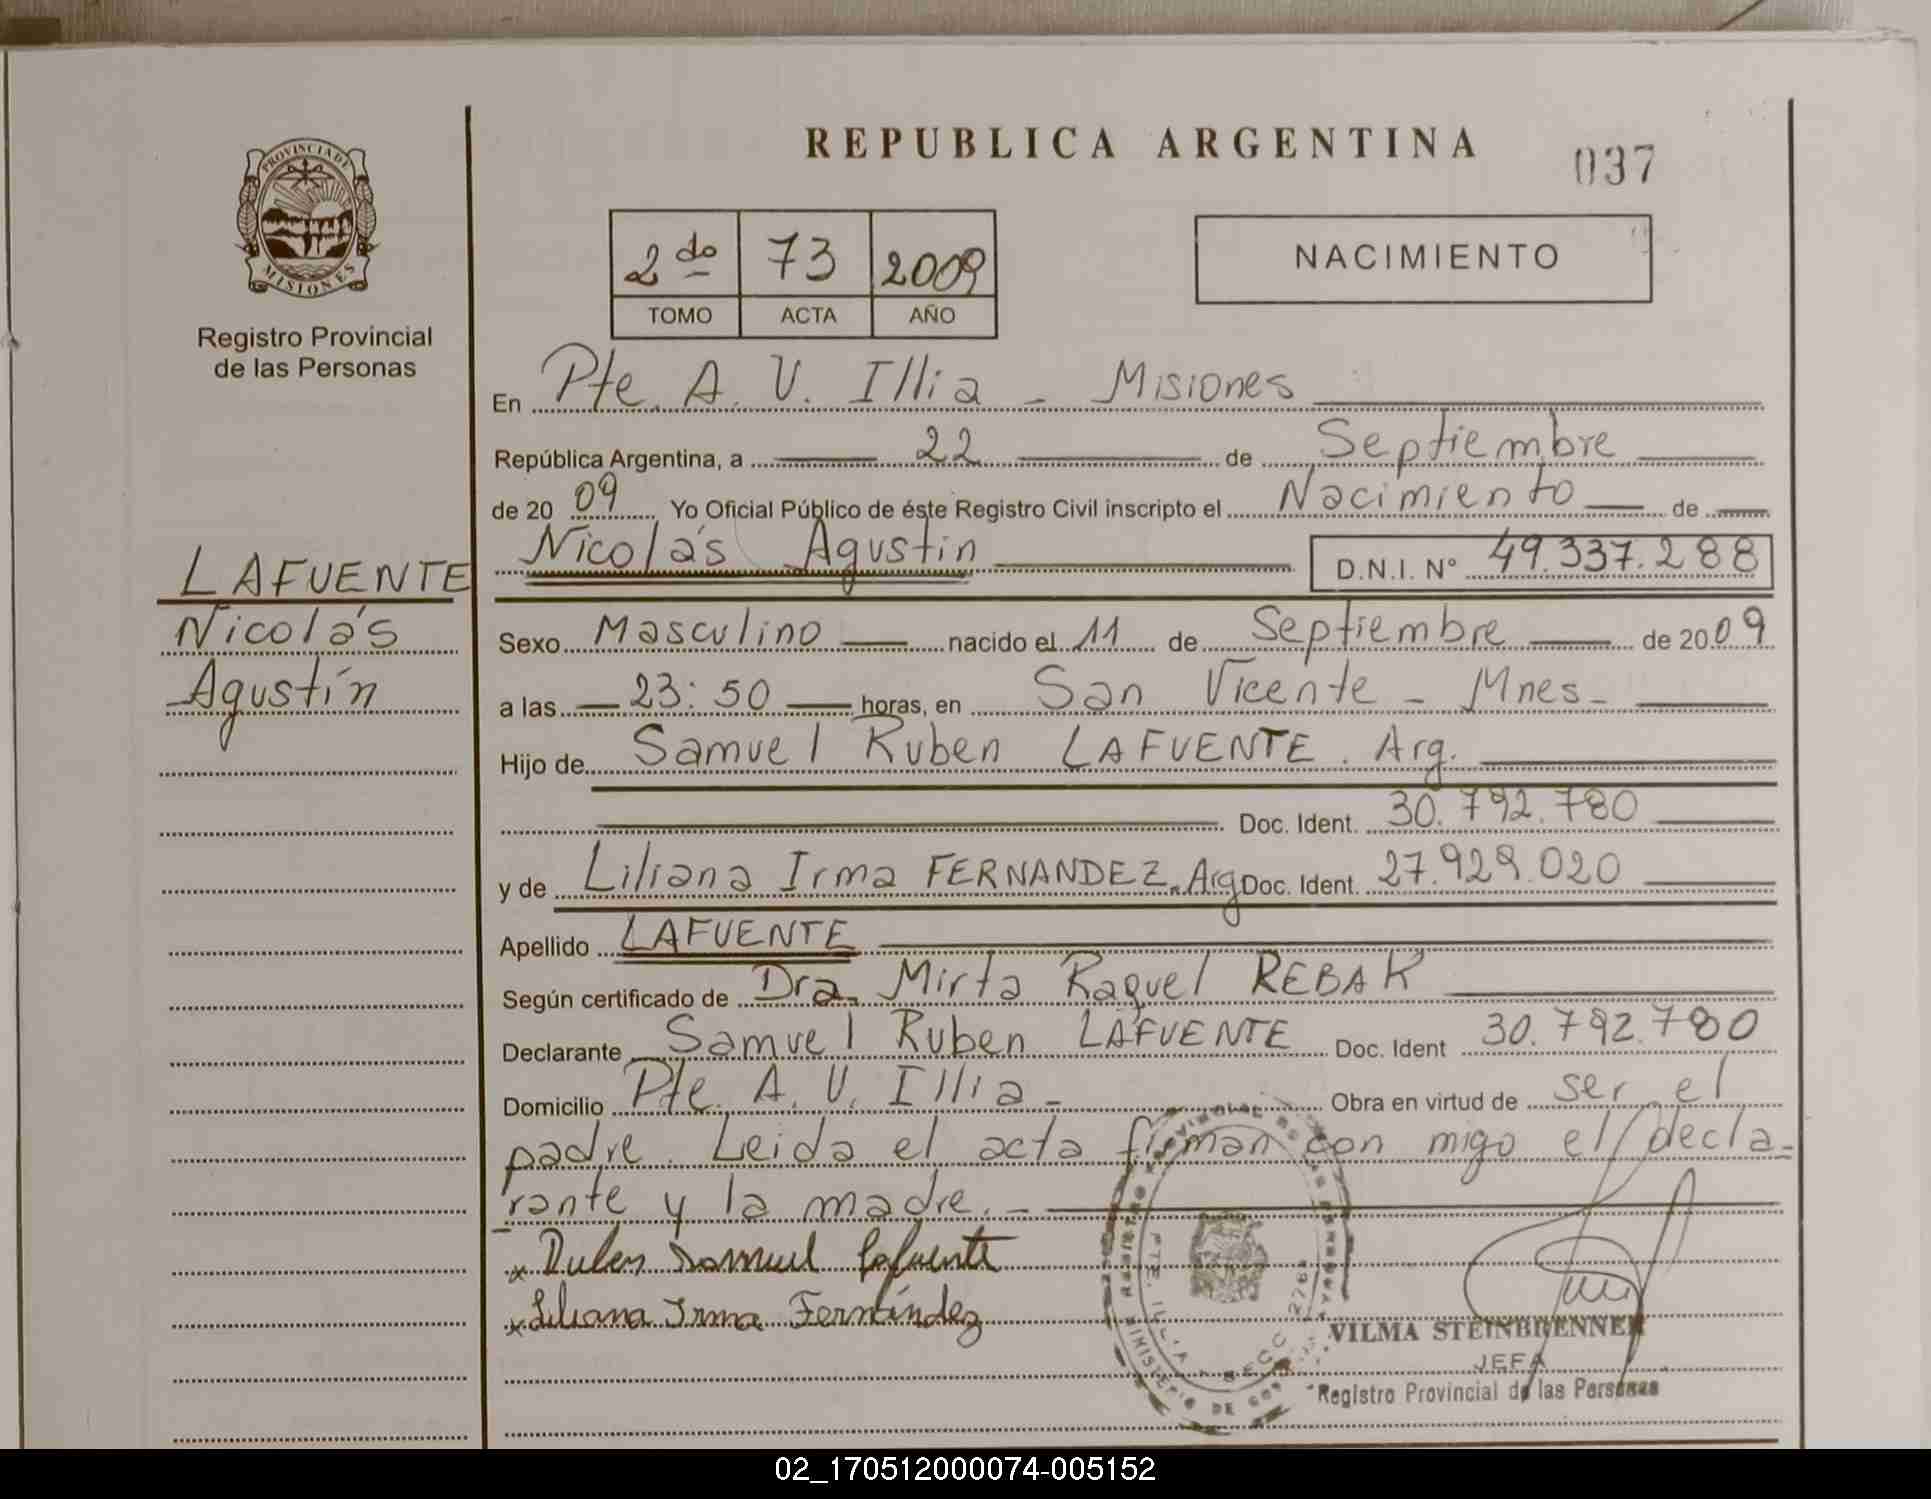 REPUBLICA ARGENTINA
037
PROVINCIA DE
MISIONES
Registro Provincial
de las Personas
2do 73 2009
TOMO ACTA AÑO
NACIMIENTO
En Pte. A. U. Illia - Misiones
República Argentina, a 22 de Septiembre
de 2009 Yo Oficial Público de éste Registro Civil inscripto el Nacimiento de
Nicolás Agustin D.N.I. N° 49.337.288
LAFUENTE
Nicolás
Agustín
Sexo Masculino nacido el 11 de Septiembre de 2009
a las 23:50 horas, en San Vicente - Mnes -
Hijo de Samuel Ruben LAFUENTE. Arg.
Doc. Ident. 30.792.780
y de Liliana Irma FERNANDEZ. Arg Doc. Ident. 27.929.020
Apellido LAFUENTE
Según certificado de Dra. Mirta Raquel REBAK
Declarante Samuel Ruben LAFUENTE Doc. Ident 30.792.780
Domicilio Pte. A. U. Illia - Obra en virtud de ser el
padre. Leida el acta firman con migo el decla-
rante y la madre. -
x Ruben Samuel Lafuente
x Liliana Irma Fernández
VILMA STEINBRENNER
JEFA
Registro Provincial de las Personas
02_170512000074-005152